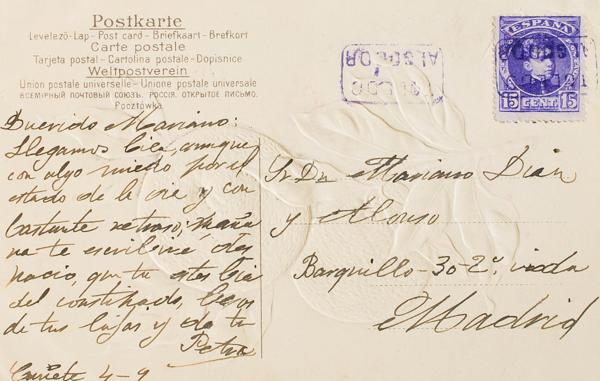 Postkarte
Levelező-Lap - Post card - Briefkaart - Brefkort
Carte postale
Tarjeta postal - Cartolina postale - Dopisnice
Weltpostverein
Union postale universelle - Unione postale universale
ВСЕМІРНЫЙ ПОЧТОВЫЙ СОЮЗЪ. РОССІЯ. ОТКРЫТОЕ ПИСЬМО.
Pocztówka.
ESPAÑA
15 CENT. 15
Querido Mariano:
Llegamos bien, aunque
con algo miedo por el
estado de la vía y con
bastante retraso, maña
na te escribiré des
pacio, que tu estes bien
del constipado, besos
de tus hijas y de tu
Petra
4-9
Sr Dn Mariano Dian
y Alonso
Barquillo-30-2º
Madrid